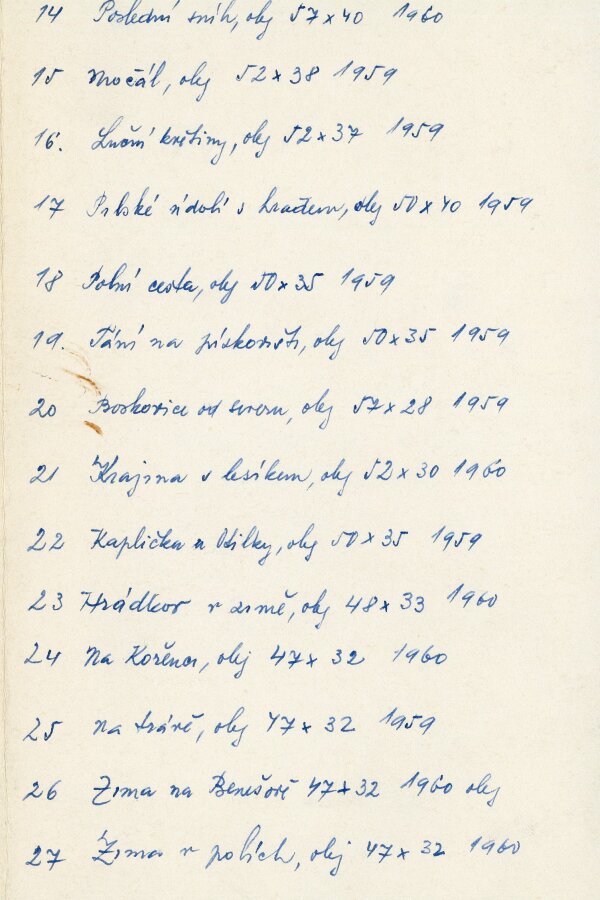 14 Poslední sníh, olej 57x40 1960
15 Močál, olej 52x38 1959
16. Luční květiny, olej 52x37 1959
17 údolí s hradem, olej 50x40 1959
18 Polní cesta, olej 50x35 1959
19. Tání na pískovišti, olej 50x35 1959
20 Boskovice od severu, olej 57x28 1959
21 Krajina s lesíkem, olej 52x30 1960
22 Kaplička u Otilky, olej 50x35 1959
23 Hrádkov v zimě, olej 48x33 1960
24 Na Kořenci, olej 47x32 1960
25 Na trávě, olej 47x32 1959
26 Zima na Benešově 47x32 1960 olej
27 Zima v polích, olej 47x32 1960